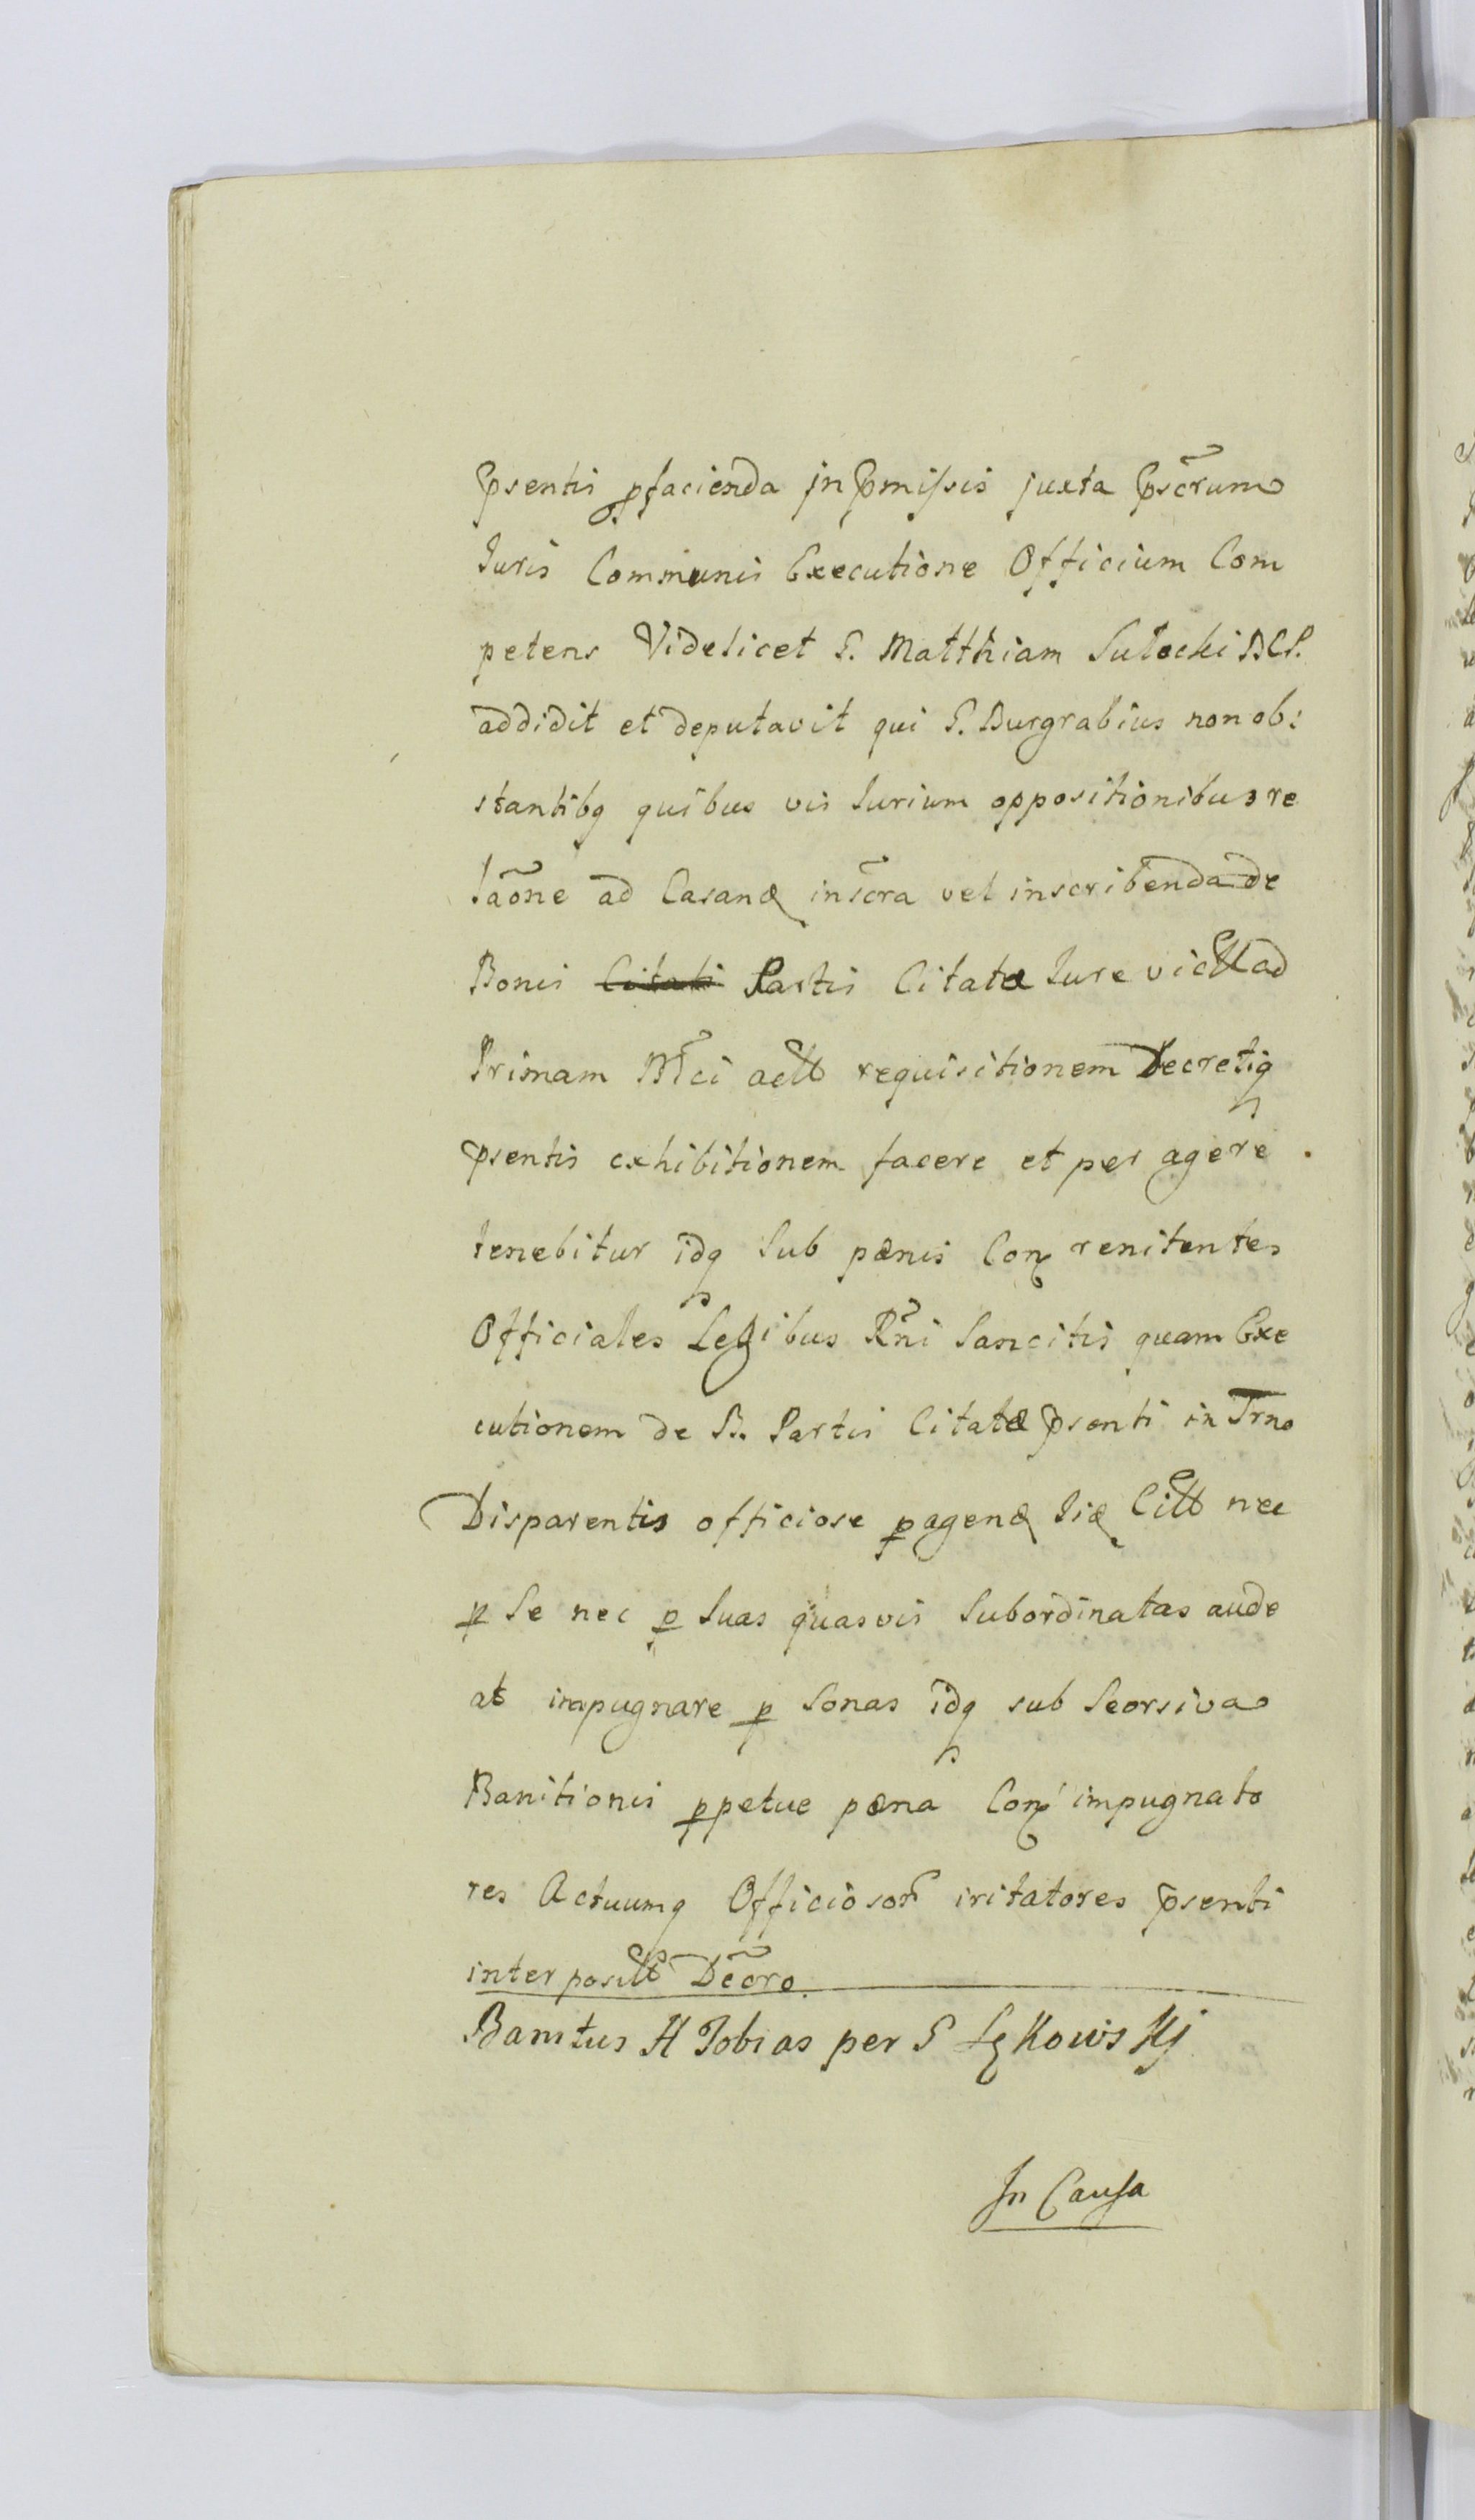 Psentis pfacienda in Pmissis juxta Pscrum
Iuris Communis Executione Officium Com
petens Videlicet G. Matthiam Sutocki BCP.
addidit et deputavit qui G. Burgrabius non ob:
stantibq quibus vis Iurium oppositionibus re
laõne ad Casand inscra vel inscribenda de
Bonis Citati Partis Citatæ Iure victt ad
Primam Mfci actt requisitionem Decretiq
psentis exhibitionem facere et per agere
tenebitur idq Sub pænis Con renitentes
Officiales Legibus Rni Sancitis quam Exe
cutionem de B. Partis Citatæ Psenti in Trno
Disparentis officiose pagend Citt nec
p Se nec p Suas quasvis Subordinatas aude
at impugnare p Sonas idq sub Seorsiva
Banitionis ppetue pæna Con impugnato
res Actuumq Officiosor iritatores psenti
interposit Decro.
Banitus H Tobias per G Lękowskj
In Causa